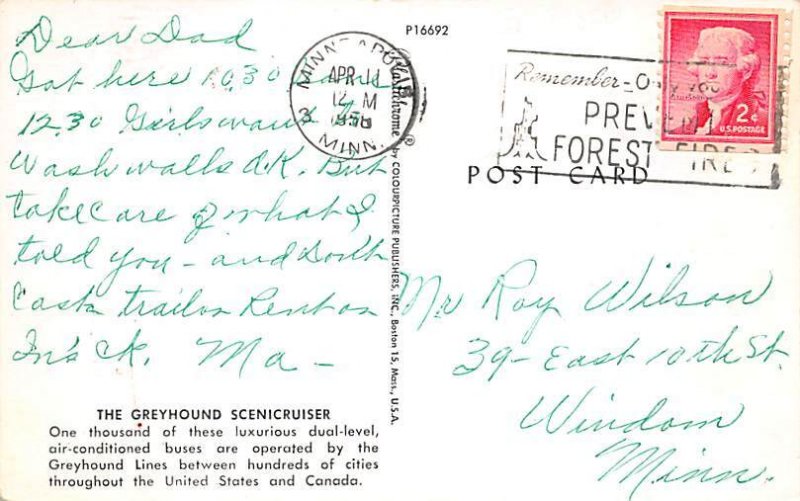 Dear Dad
Got here 10:30
12:30 Girls want to
Wash walls O.K. But
take care of what I
told you - and don't
Cash trailer Rent or
In's ck. Ma -
THE GREYHOUND SCENICRUISER
One thousand of these luxurious dual-level,
air-conditioned buses are operated by the
Greyhound Lines between hundreds of cities
throughout the United States and Canada.
P16692
MINNEAPOLIS
APR 11
12 M
MINN.
3
by COLOURPICTURE PUBLISHERS, INC., Boston 15, Mass., U.S.A.
Remember-Only you
PREVENT
FOREST FIRES
2¢
U.S. POSTAGE
POST CARD
Mr Roy Wilson
39- East 10th St.
Windom
Minn.